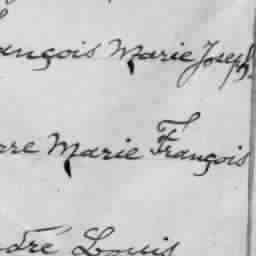 ançois Marie Joseph.
re Marie François
dré Louis